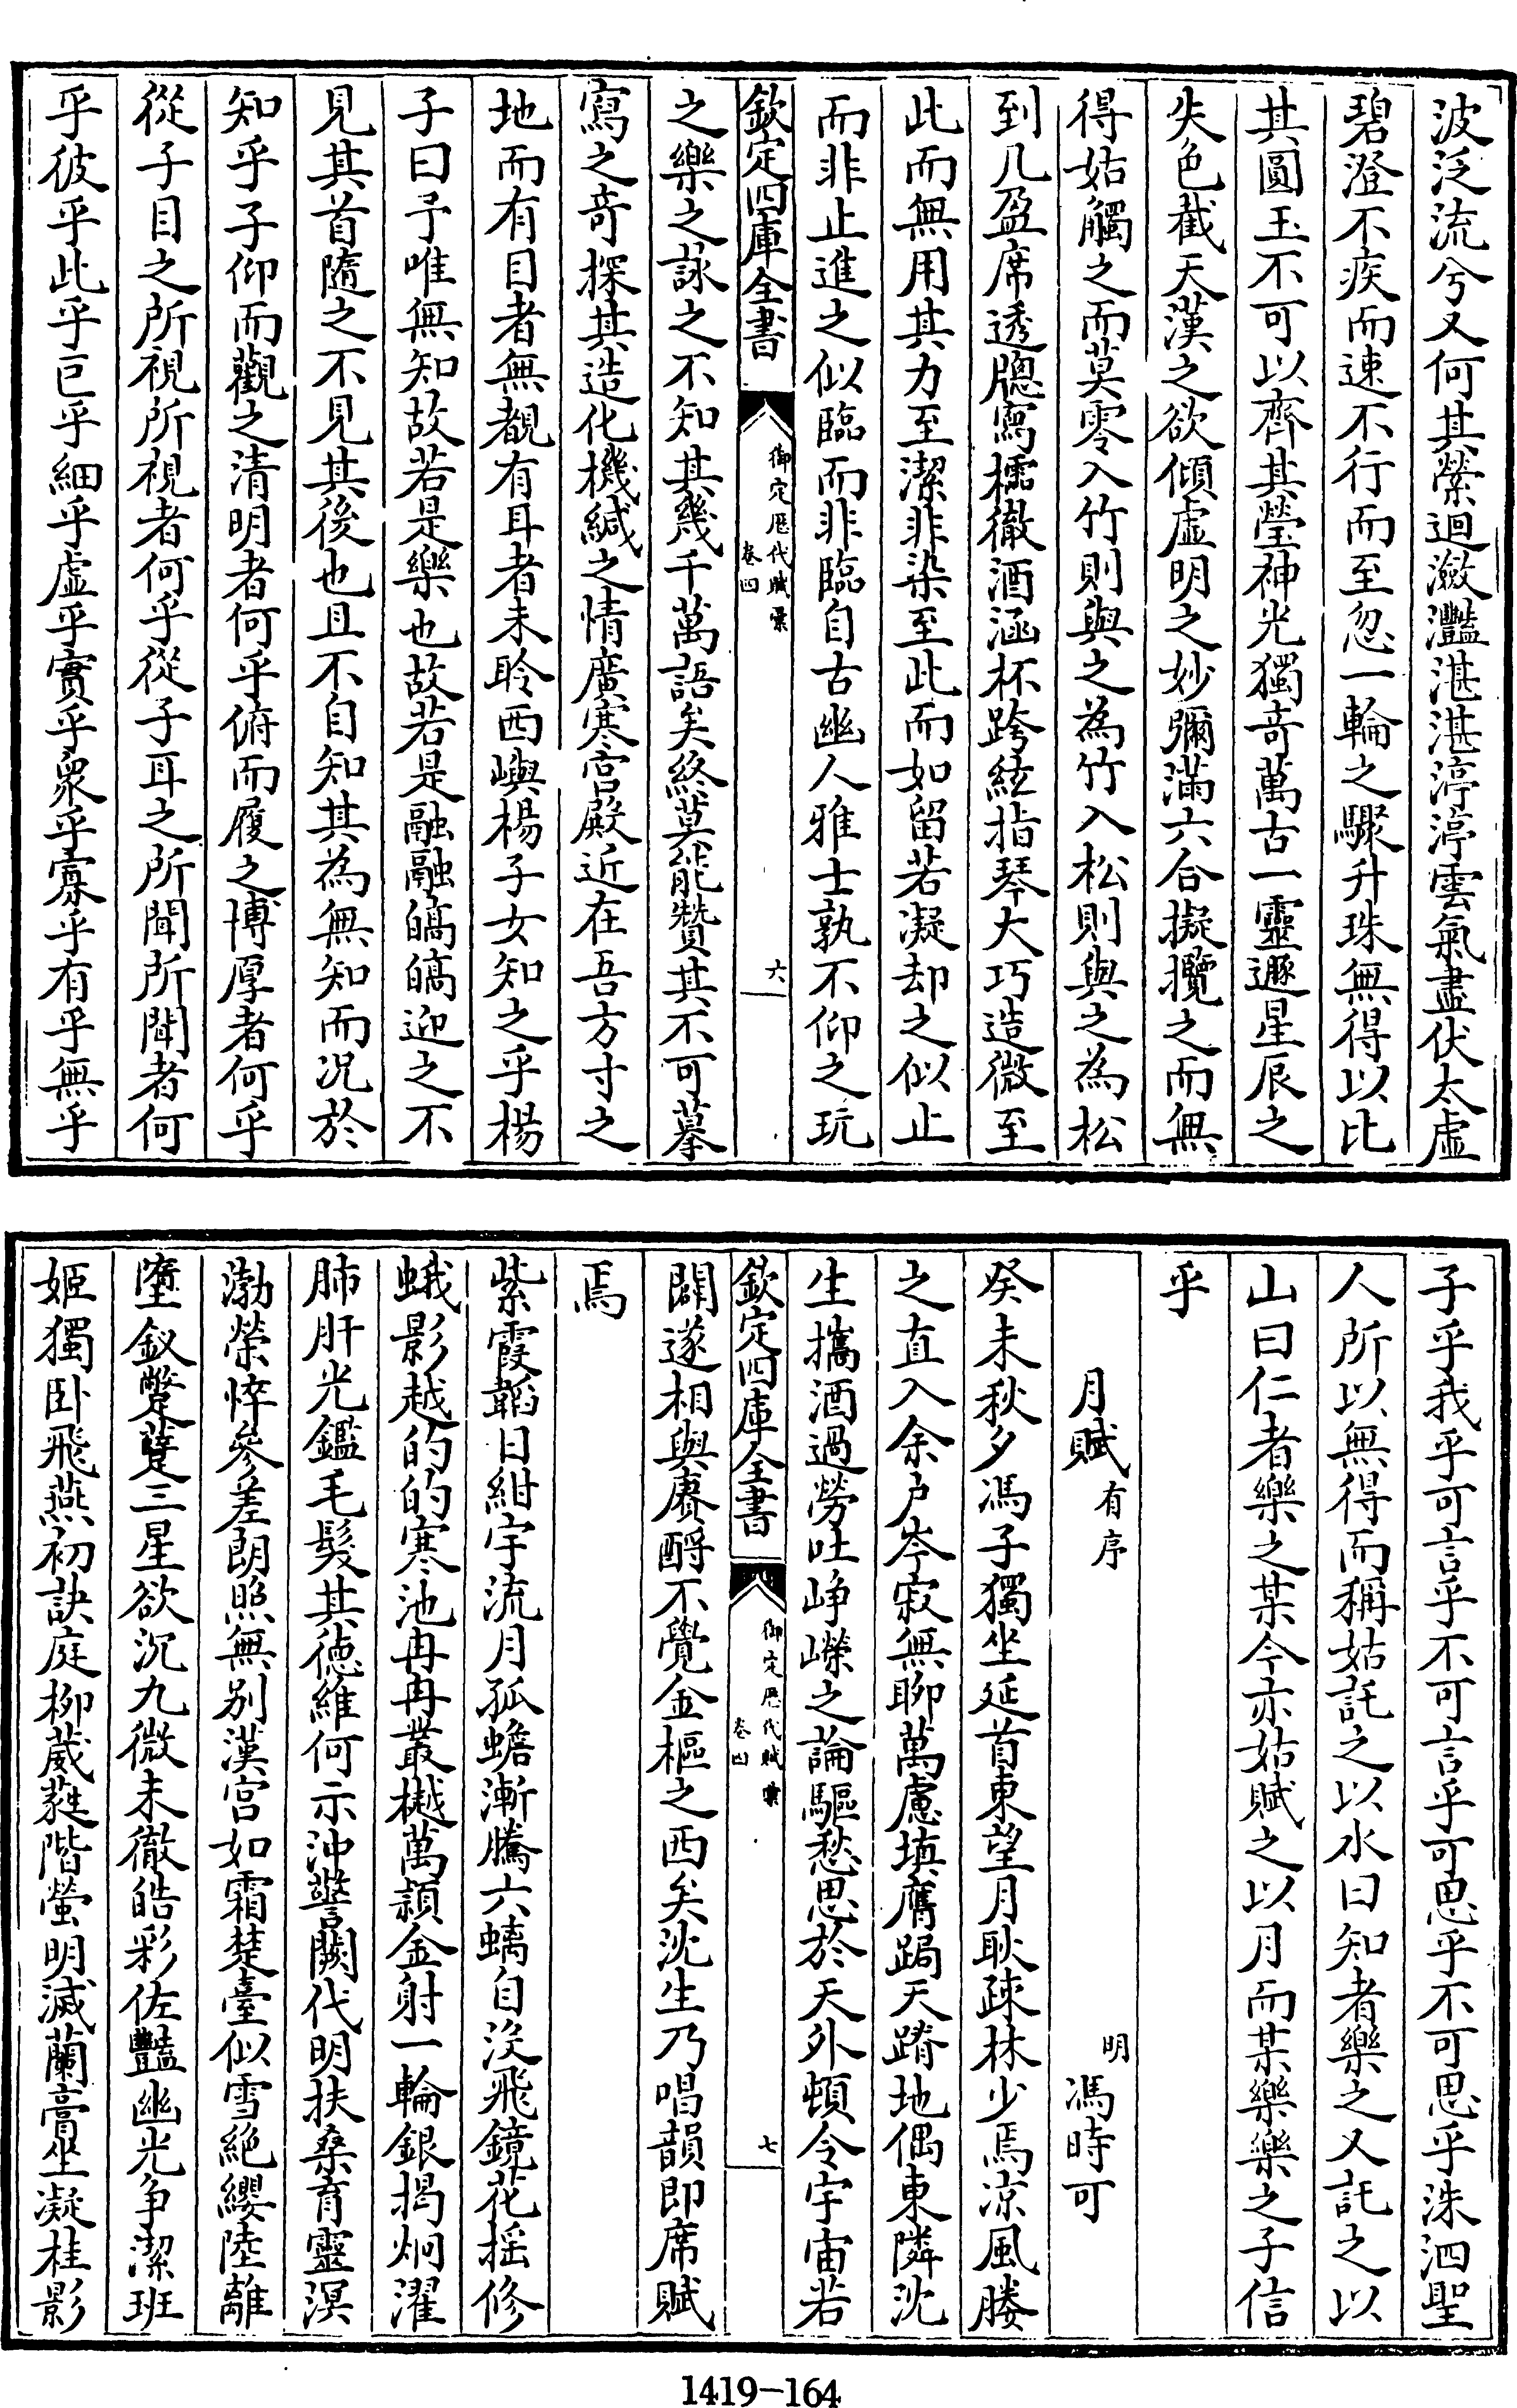 波泛流兮又何其縈迴瀲灩湛湛渟渟雲氣盡伏太虛
碧澄不疾而速不行而至忽一輪之驟升珠無得以比
其圓玉不可以齊其瑩神光獨奇萬古一靈遯星辰之
失色截天漢之欲傾虛明之妙彌滿六合擬攬之而無
得姑觸之而莫零入竹則與之為竹入松則與之為松
到几盈席透牕寫櫺徹酒涵杯跨絃指琴大巧造微至
此而無用其力至潔非染至此而如留若凝却之似止
而非止進之似臨而非臨自古幽人雅士孰不仰之玩
欽定四庫全書
御定歷代賦彙
卷四
六
之樂之詠之不知其幾千萬語矣終莫能贊其不可摹
寫之奇探其造化機緘之情廣寒宮殿近在吾方寸之
地而有目者無覩有耳者未聆西嶼楊子女知之乎楊
子曰予唯無知故若是樂也故若是融融皜皜迎之不
見其首隨之不見其後也且不自知其為無知而况於
知乎子仰而觀之清明者何乎俯而履之博厚者何乎
從子目之所視所視者何乎從子耳之所聞所聞者何
乎彼乎此乎巨乎細乎虛乎實乎衆乎寡乎有乎無乎
子乎我乎可言乎不可言乎可思乎不可思乎洙泗聖
人所以無得而稱姑託之以水曰知者樂之又託之以
山曰仁者樂之某今亦姑賦之以月而某樂樂之子信
乎
月賦 有序 明 馮時可
癸未秋夕馮子獨坐延首東望月耿疎林少焉涼風媵
之直入余户岑寂無聊萬慮填膺跼天蹐地偶東隣沈
生攜酒過勞吐崢嶸之論驅愁思於天外頓令宇宙若
闢遂相與賡酹不覺金樞之西矣沈生乃唱韻即席賦
焉
欽定四庫全書
御定歷代賦彙
卷四
七
紫霞韜日紺宇流月孤蟾漸騰六螭自没飛鏡花摇修
蛾影越的的寒池冉冉叢樾萬頴金射一輪銀揭炯濯
肺肝光鑑毛髮其德維何示沖警闕代明扶桑育靈溟
渤榮悴參差朗照無别漢宫如霜楚臺似雪絶纓陸離
墮釵蹩躠三星欲沉九微未徹皓彩佐豔幽光争潔班
姬獨卧飛燕初訣庭柳葳蕤階螢明滅蘭膏坐凝桂影
1419-164